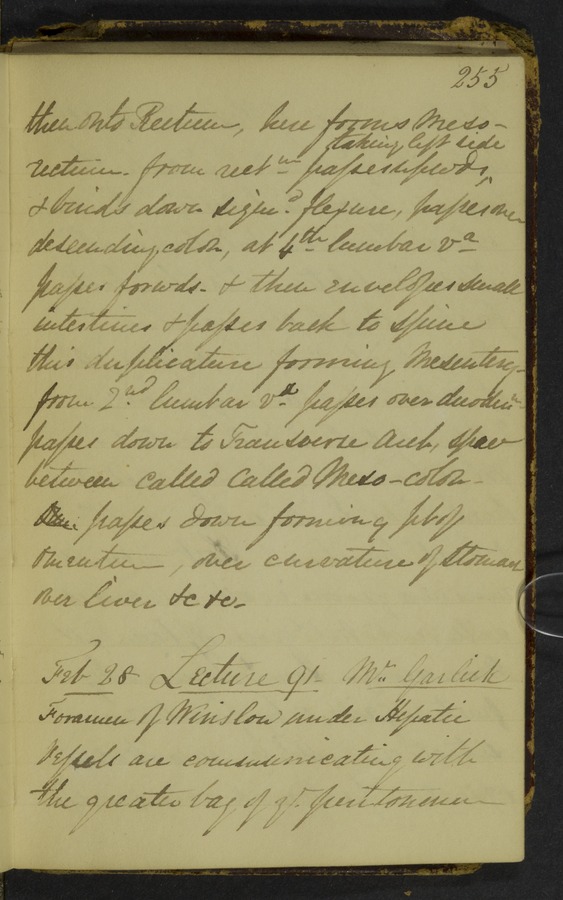 255
then onto Rectum, here forms Meso-
taking left side
rectum. from rectm passes upwds,
& binds down sigmd flexure, passes over
descending colon, at 4th lumbar va
passes forwds. & then envelopes small
intestines & passes back to spine
this duplicature forming Mesentery-
from 2nd lumbar va passes over duodm
passes down to Transverse Arch, space
between called called Meso-colon-
passes down forming pt of
Omentum, over curvature of Stomach
over liver &c &c-
Feb 28 Lecture 91 Mr Garlick
Foramen of Winslow under Hepatic
Vessels are communicating with
the greater bag of gt. peritoneum